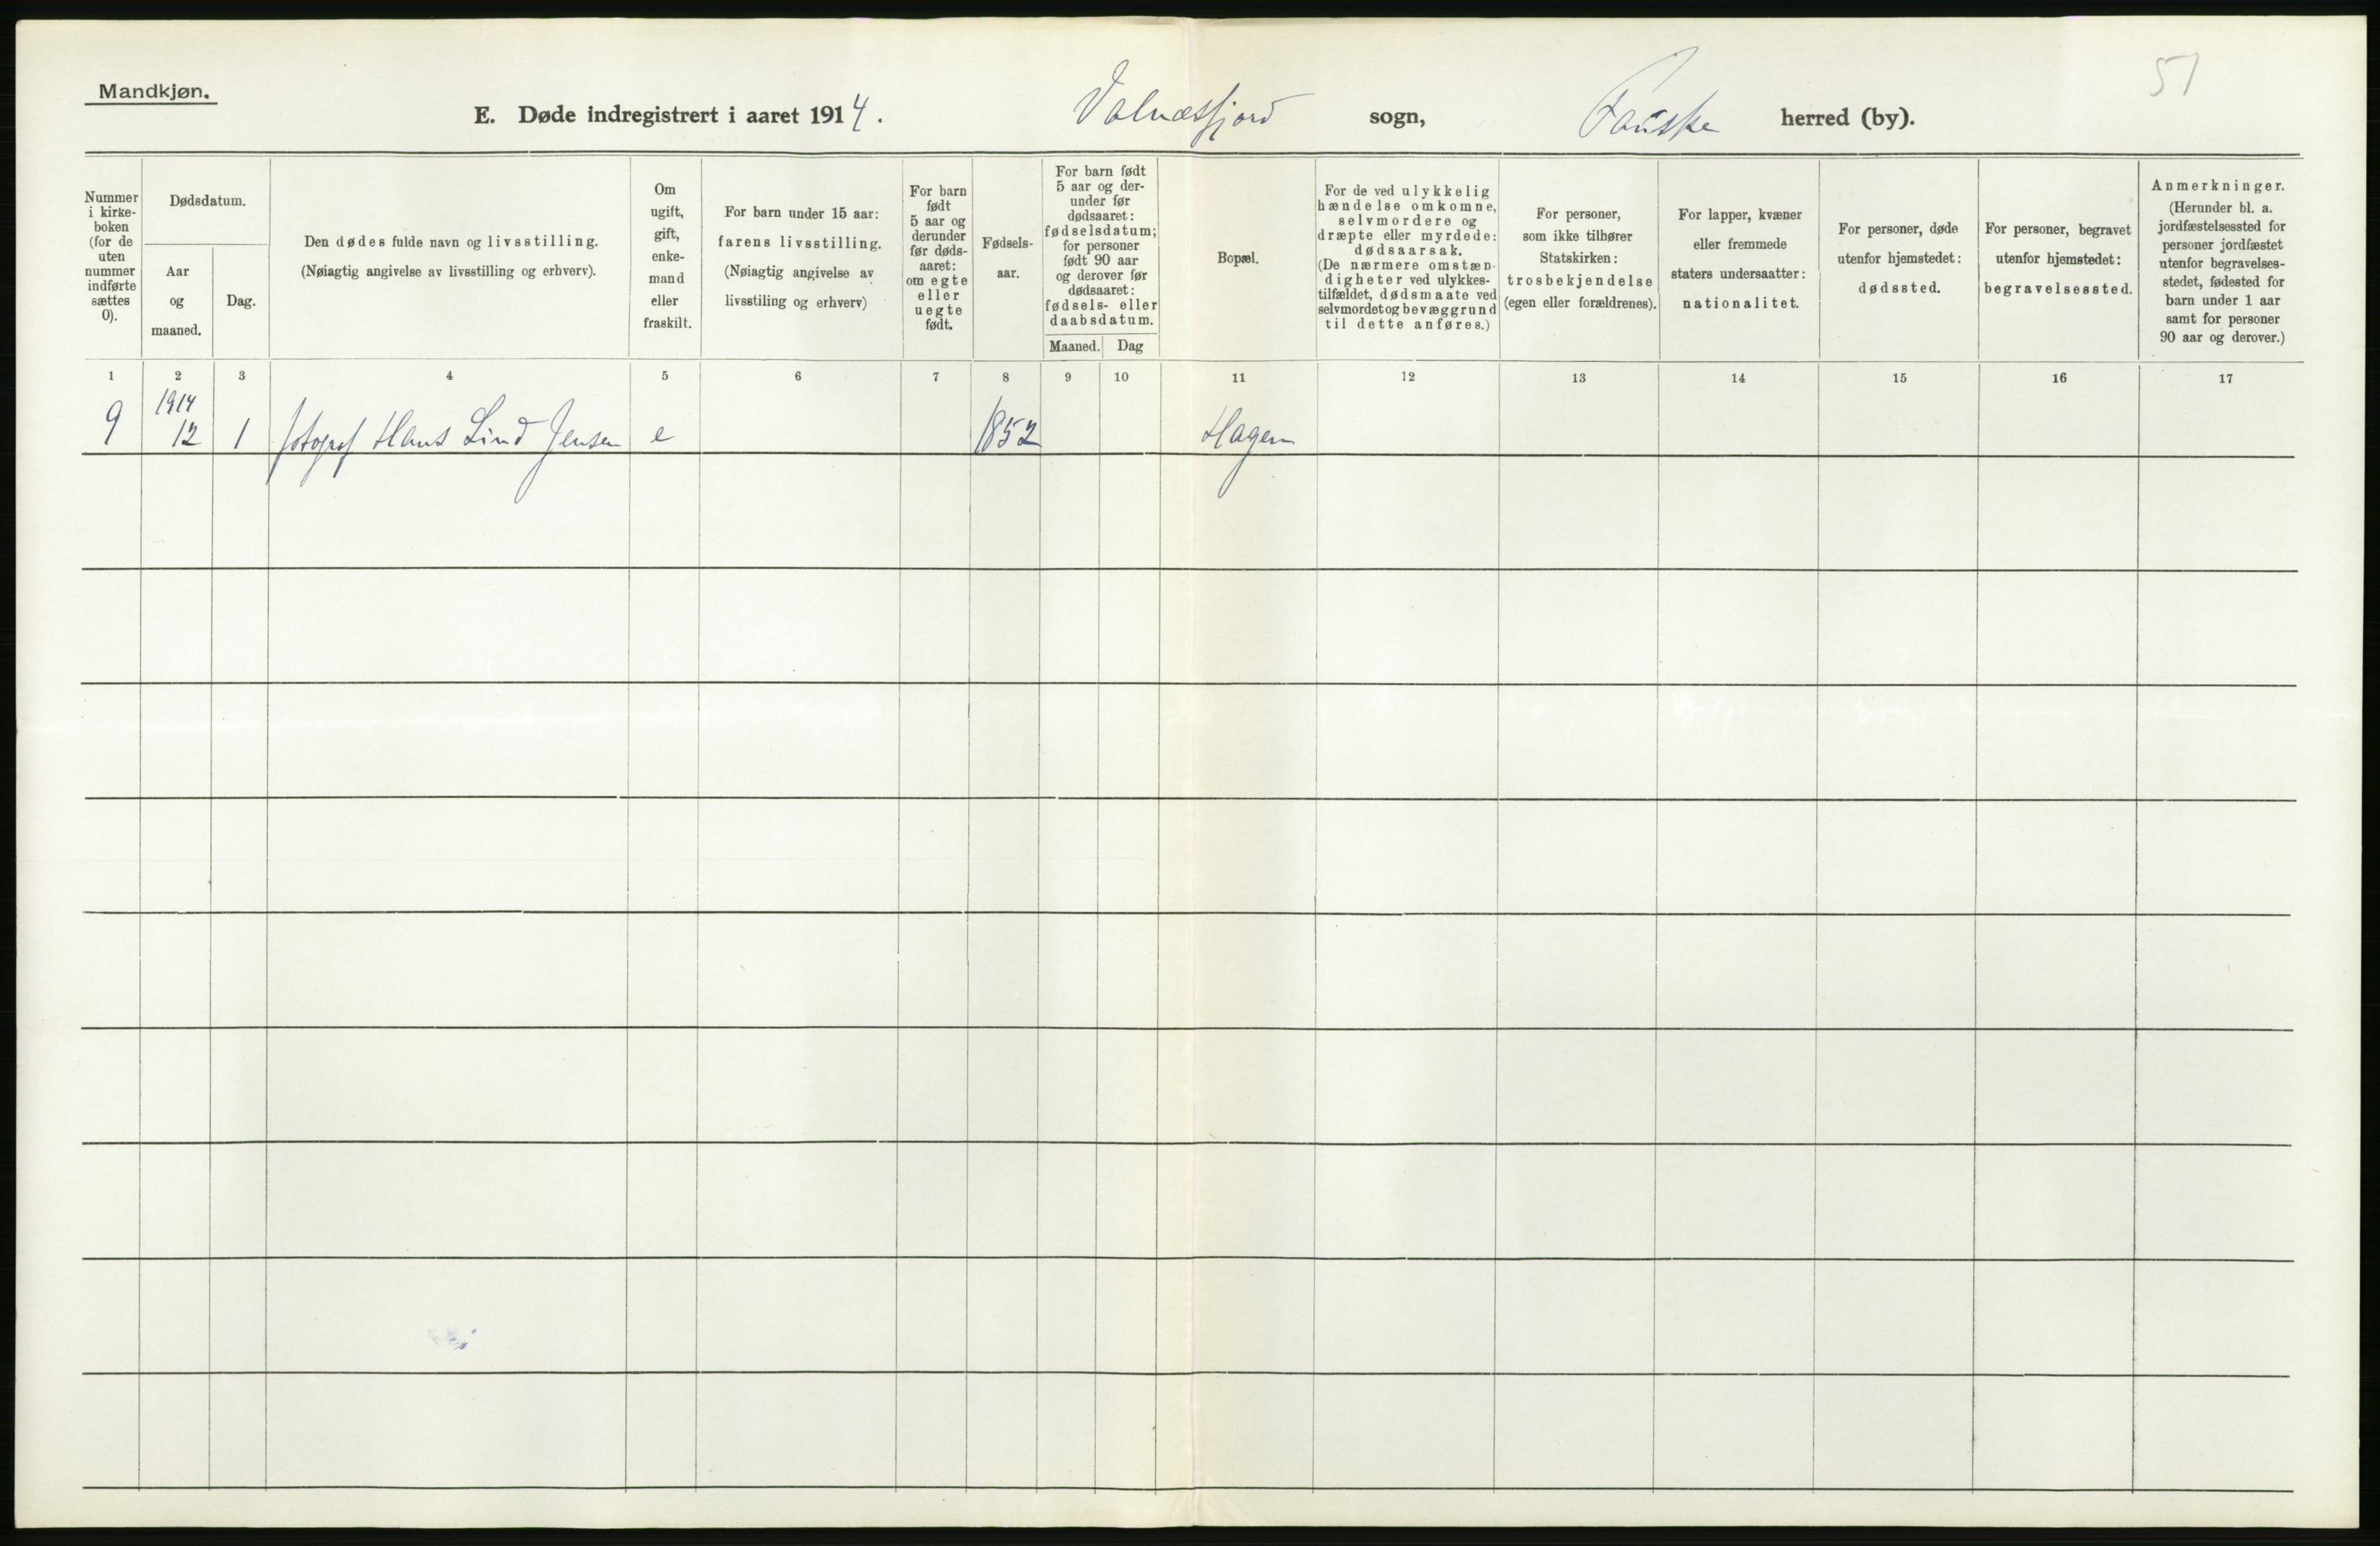 Mandkjøn.
51
E. Døde indregistrert i aaret 1914. Valnæsfjord sogn, Fauske herred (by).
Nummer
i kirke-
boken
(for de
uten
nummer
indførte
sættes
0).
Dødsdatum.
Aar
og
maaned.
Dag.
Den dødes fulde navn og livsstilling.
(Nøiagtig angivelse av livsstilling og erhverv).
Om
ugift,
gift,
enke-
mand
eller
fraskilt.
For barn under 15 aar:
farens livsstilling.
(Nøiagtig angivelse av
livsstiling og erhverv)
For barn
født
5 aar og
derunder
før døds-
aaret:
om egte
eller
uegte
født.
Fødsels-
aar.
For barn født
5 aar og der-
under før
dødsaaret:
fødselsdatum;
for personer
født 90 aar
og derover før
dødsaaret:
fødsels- eller
daabsdatum.
Maaned. Dag
Bopæl.
For de ved ulykkelig
hændelse omkomne,
selvmordere og
dræpte eller myrdede:
dødsaarsak.
(De nærmere omstæn-
digheter ved ulykkes-
tilfældet, dødsmaate ved
selvmordet og bevæggrund
til dette anføres.)
For personer,
som ikke tilhører
Statskirken:
trosbekjendelse
(egen eller forældrenes).
For lapper, kvæner
eller fremmede
staters undersaatter:
nationalitet.
For personer, døde
utenfor hjemstedet:
dødssted.
For personer, begravet
utenfor hjemstedet:
begravelsessted.
Anmerkninger.
(Herunder bl. a.
jordfæstelsessted for
personer jordfæstet
utenfor begravelses-
stedet, fødested for
barn under 1 aar
samt for personer
90 aar og derover.)
1 2 3 4 5 6 7 8 9 10 11 12 13 14 15 16 17
1914
9 12 1 fotograf Hans Lind Jensen e 1852 Hagen